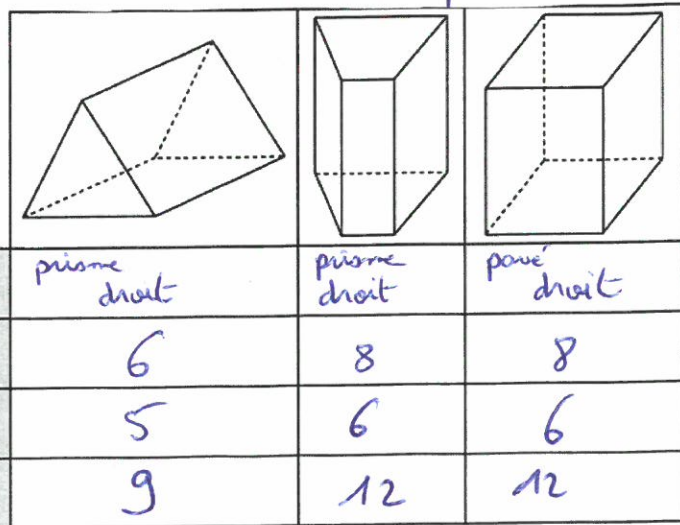 prisme droit prisme droit pavé droit
6 8 8
5 6 6
9 12 12